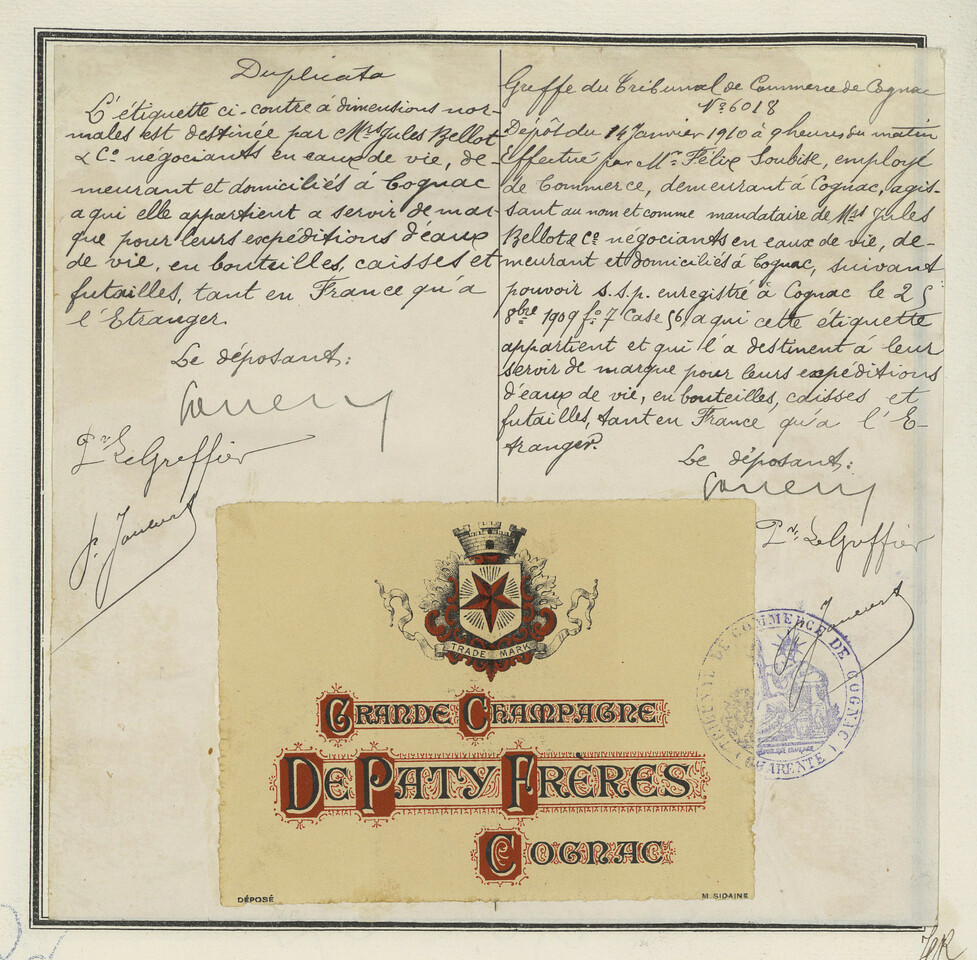 Duplicata
L'étiquette ci-contre à dimensions nor-
males est destinée par Mrs Jules Bellot
& Co négociants en eaux de vie, de-
meurant et domiciliés à Cognac
a qui elle appartient a servir de mar-
que pour leurs expéditions d'eaux
de vie, en bouteilles, caisses et
futailles, tant en France qu'à
l'Etranger.
Le déposant:
Pr Le Greffier
Greffe du Tribunal de Commerce de Cognac
No 6018
Dépôt du 14 Janvier 1910 à 9 heures du matin
Effectué par Mr Félix Soubise, employé
de Commerce, demeurant à Cognac, agis-
sant au nom et comme mandataire de Mrs Jules
Bellot & Co négociants en eaux de vie, de-
meurant et domiciliés à Cognac, suivant
pouvoir s.s.p. enregistré à Cognac le 25
8bre 1909 fo 7 Case 56, a qui cette étiquette
appartient et qui l'a destinent à leur
servir de marque pour leurs expéditions
d'eaux de vie, en bouteilles, caisses et
futailles, tant en France qu'a l'E-
tranger.
Le déposant:
Pr Le Greffier
TRIBUNAL DE COMMERCE DE COGNAC
(CHARENTE)
TRADE MARK
GRANDE CHAMPAGNE
DE PATY FRÈRES
COGNAC
DÉPOSÉ
M. SIDAINE